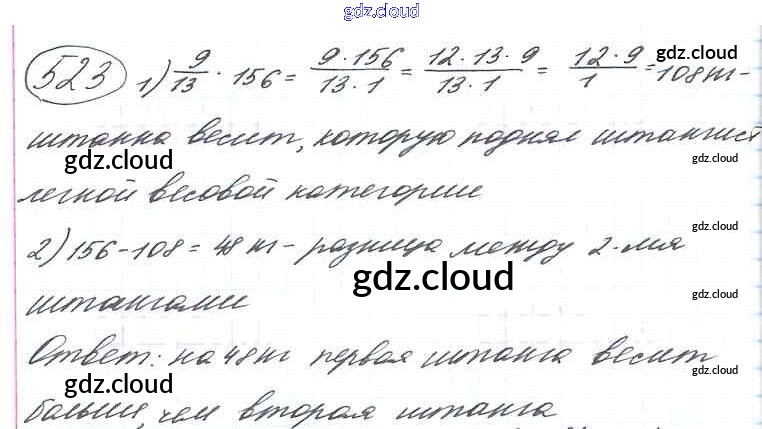 gdz.cloud
523 1) 9/13 · 156 = 9·156/13·1 = 12·13·9/13·1 = 12·9/1 = 108 кг - gdz.cloud
штанга весит, которую поднял штангист
gdz.cloud gdz.cloud
легкой весовой категории
gdz.cloud
2) 156 - 108 = 48 кг - разница между 2-мя
gdz.cloud
штангами gdz.cloud
Ответ: на 48 кг первая штанга весит
gdz.cloud gdz.cloud
больше, чем вторая штанга